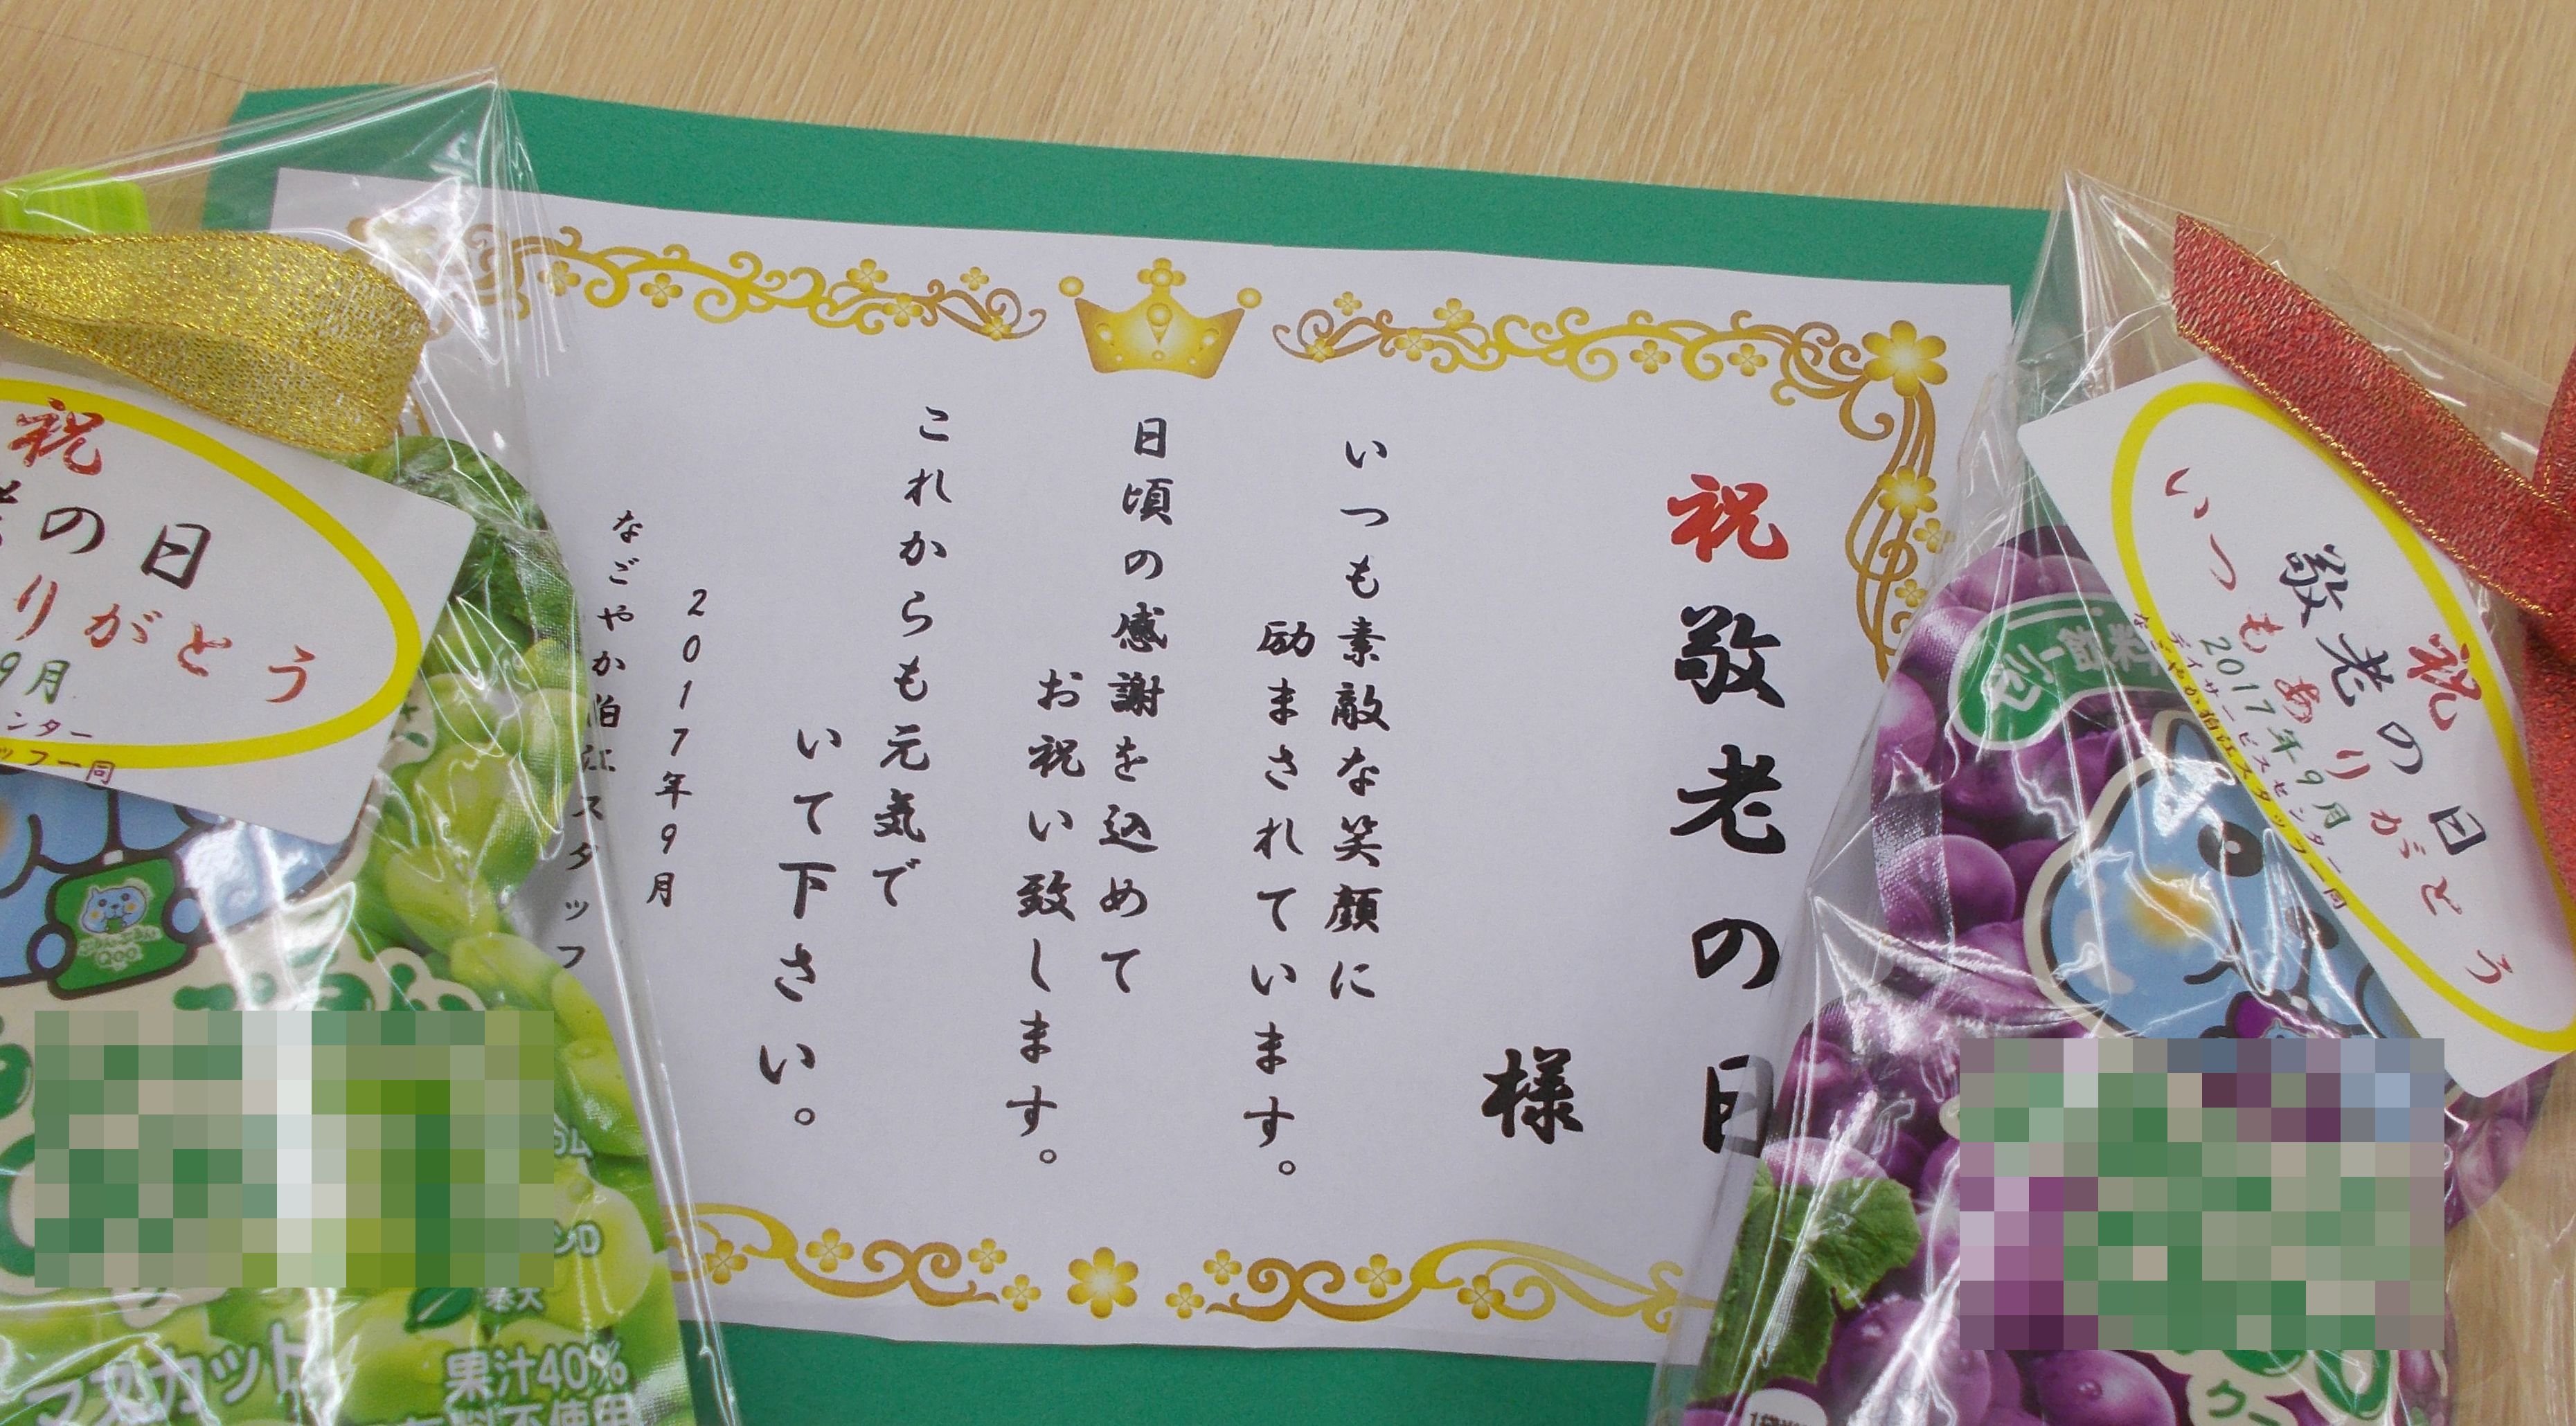 祝敬老の日
様
いつも素敵な笑顔に
励まされています。
日頃の感謝を込めて
お祝い致します。
これからも元気で
いて下さい。
2017年9月
なごやか狛江スタッフ
祝
の日
りがとう
9月
ンター
ッフ一同
Qoo
マスカット
果汁40%
不使用
祝
敬老の日
いつもありがとう
2017年9月
デイサービスセンター
なごやか狛江スタッフ一同
ゼリー飲料
クー